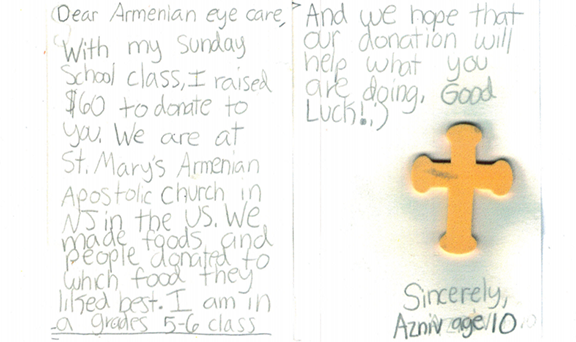 Dear Armenian eye care,
With my Sunday
School class, I raised
$60 to donate to
you. We are at
St. Mary's Armenian
Apostolic Church in
NJ in the US. We
made foods and
people donated to
which food they
liked best. I am in
a grades 5-6 class
And we hope that
our donation will
help what you
are doing. Good
Luck! :)
Sincerely,
Azniv age 10